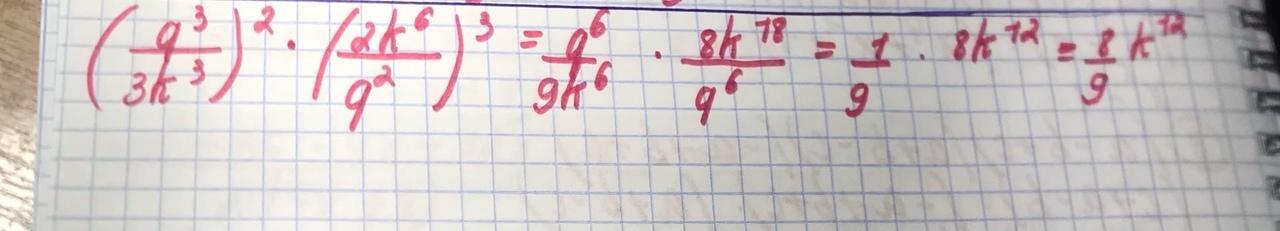 (q³/3k³)² · (2k⁶/q²)³ = q⁶/9k⁶ · 8k¹⁸/q⁶ = 1/9 · 8k¹² = 8/9 k¹²